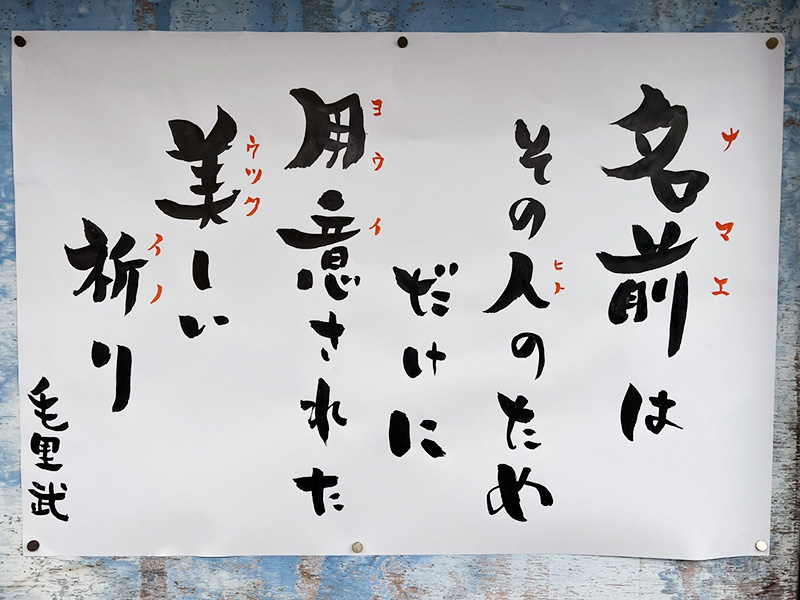 名前は
ナマエ
その人のため
ヒト
だけに
用意された
ヨウイ
美しい
ウツク
祈り
イノ
毛里武